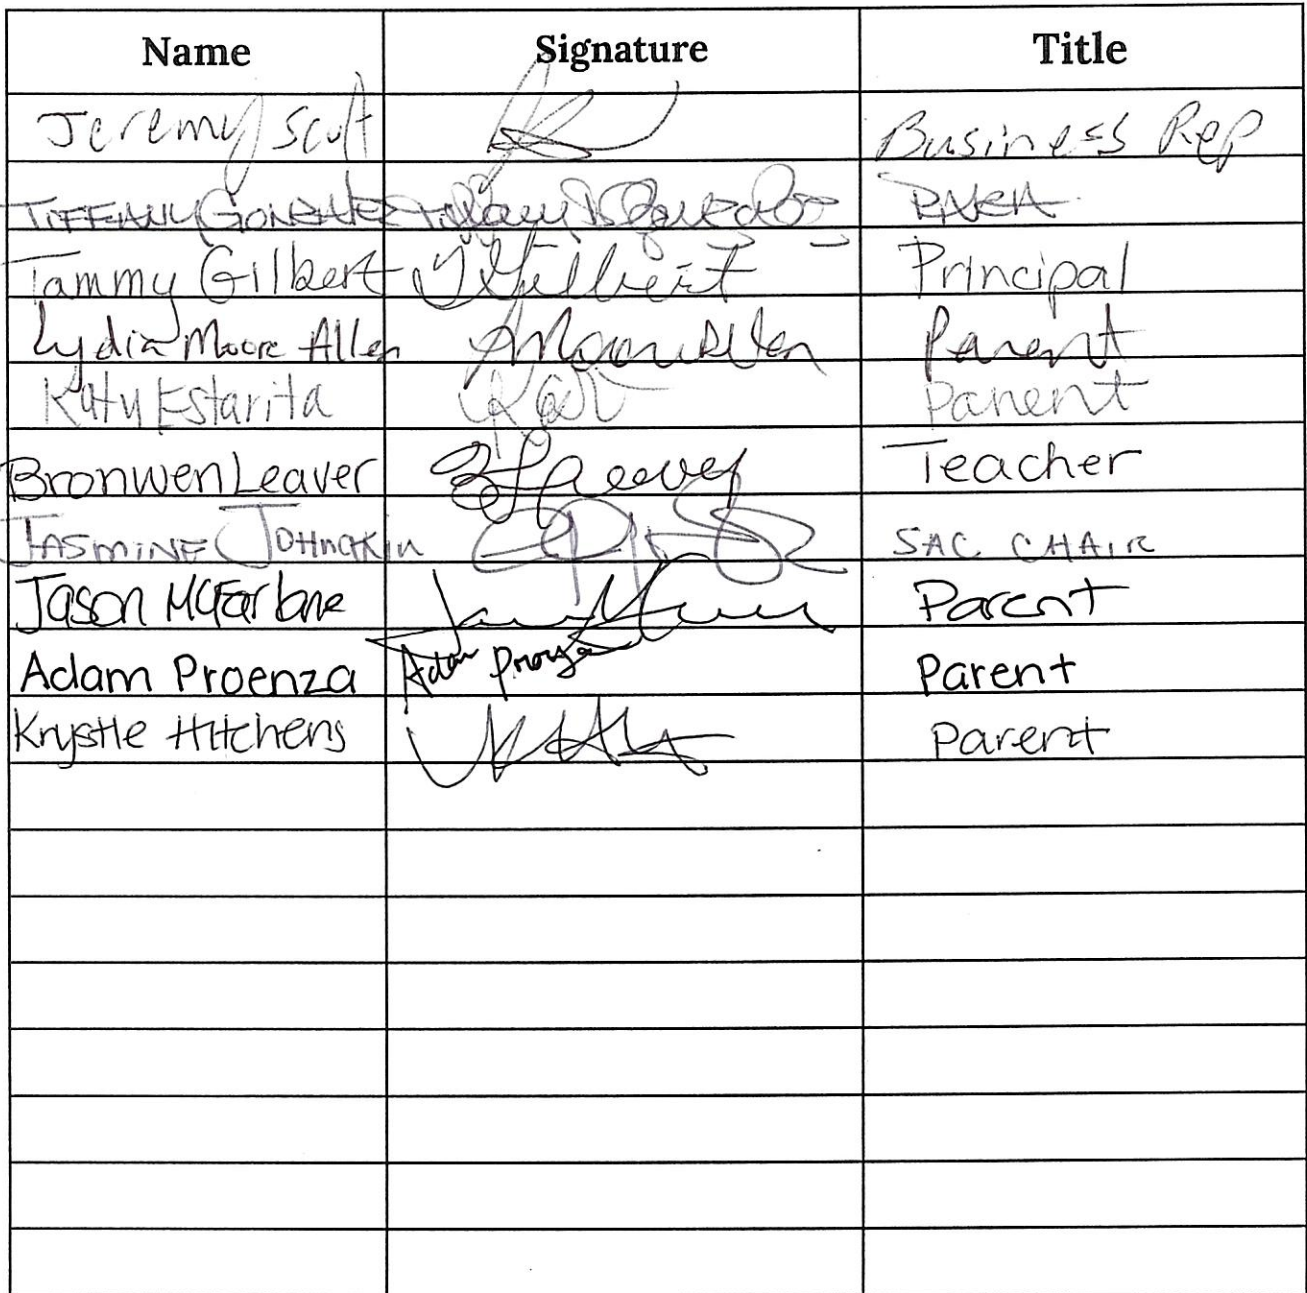 Name Signature Title
Jeremy Scott Business Rep
TIFFANY GONZALEZ PARA
Tammy Gilbert TGilbert Principal
Lydia Moore Allen Parent
Katy Estarita Parent
Bronwen Leaver BLeaver Teacher
JASMINE JOHNAKIN SAC CHAIR
Jason McFarlane Parent
Adam Proenza Adam Proenza Parent
Krystle Hitchens Parent